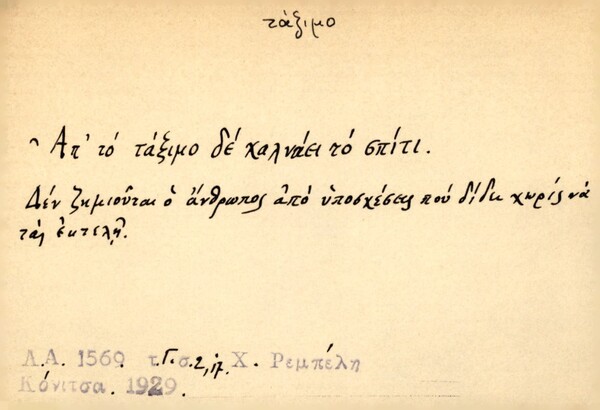 τάξιμο
Ἀπ' τό τάξιμο δέ χαλνάει τό σπίτι.
Δέν ζημιοῦται ὁ ἄνθρωπος ἀπό ὑποσχέσεις πού δίδει χωρίς νά
τάς ἐκτελῇ.
Λ.Α. 1569 τ.Γ.σ.2,17. Χ. Ρεμπέλη
Κόνιτσα. 1929.